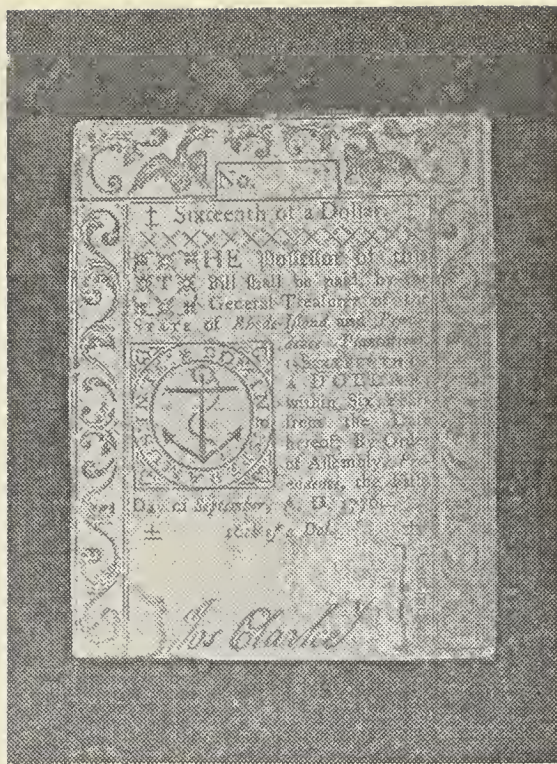 No.
‡ Sixteenth of a Dollar. ‡
THE Possessor of this
Bill shall be paid, by the
General-Treasurer of the
STATE of Rhode-Island and Provi-
dence Plantations,
SIXTEENTH of
A DOLLAR,
within Six Years
from the Date
hereof. By Order
of Assembly. Pro-
vidence, the
Day of September, A. D. 1776.
16th of a Dol.
Jos Clarke